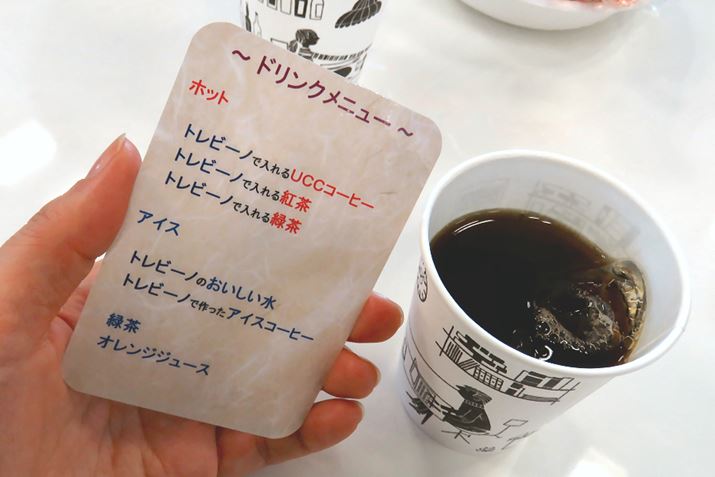 ～ドリンクメニュー～
ホット
トレビーノで入れるUCCコーヒー
トレビーノで入れる紅茶
トレビーノで入れる緑茶
アイス
トレビーノのおいしい水
トレビーノで作ったアイスコーヒー
緑茶
オレンジジュース